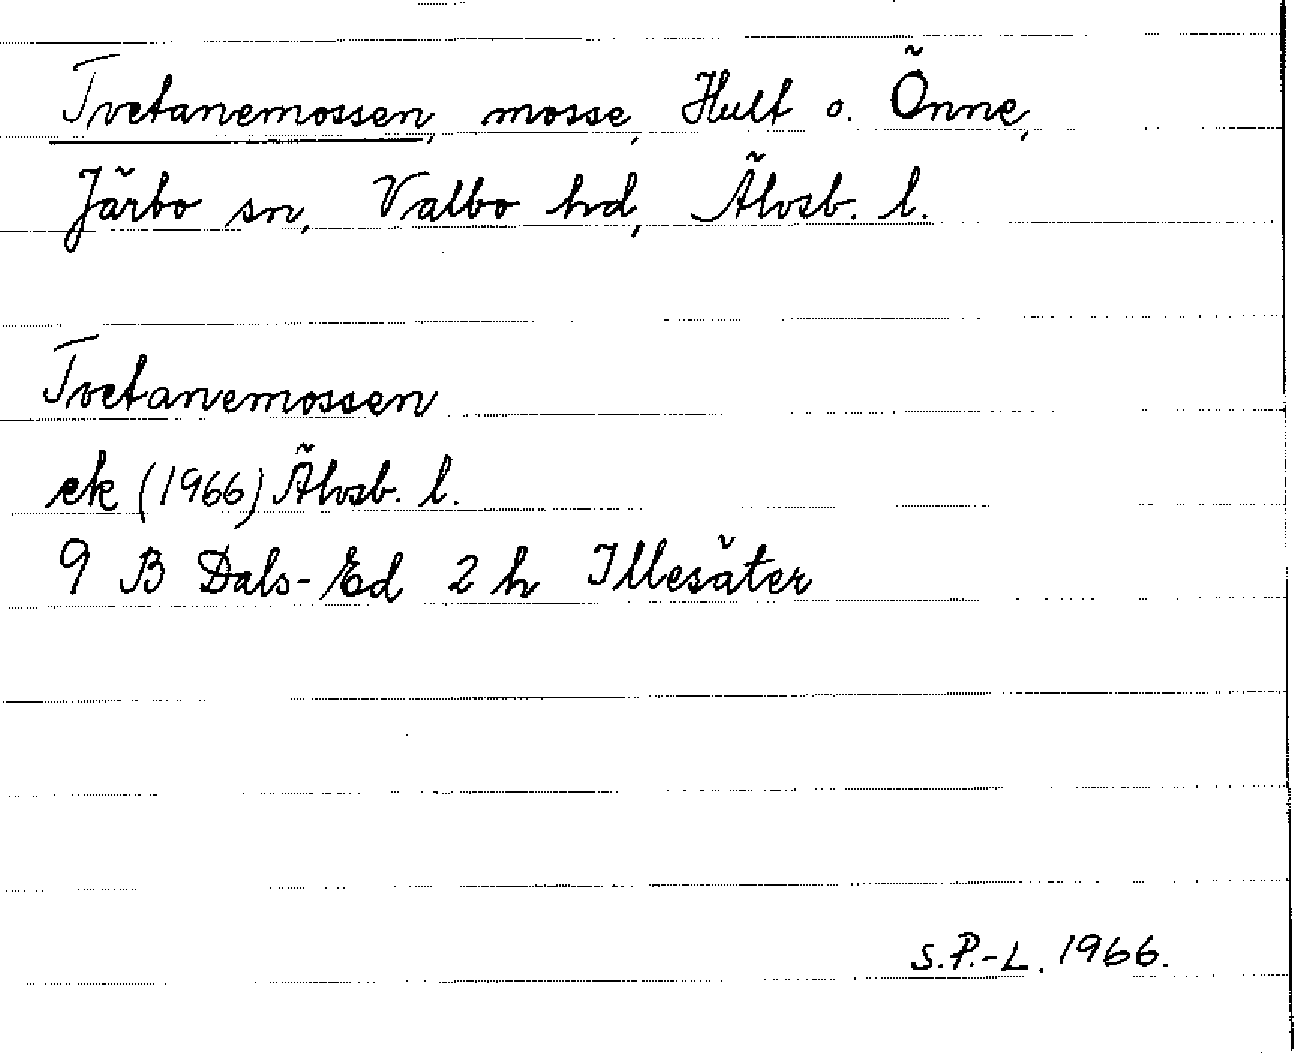 Tvetanemossen, mosse, Hult o. Önne,
Järbo sn, Valbo hd, Älvsb. l.
Tvetanemossen
ek (1966) Älvsb. l.
9 B Dals-Ed 2 h Illesäter
S.P.-L. 1966.